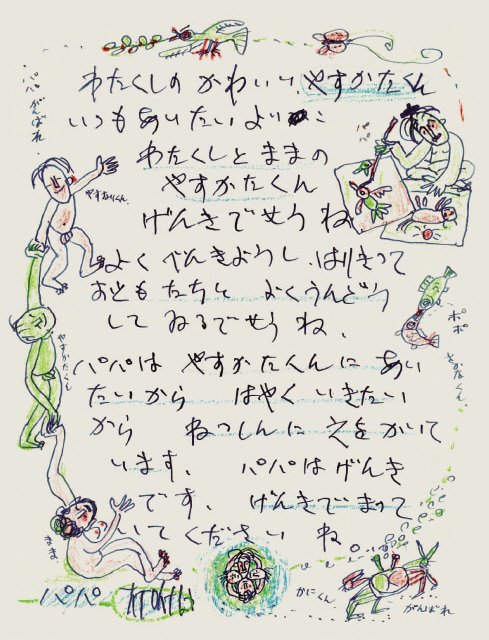 パパがんばれ
わたくしの かわいい やすかたくん
いつも あいたいよ
わたくしと ままの
やすかたくん
げんきで せう ね
よく べんきようし、はりきって
おともたちと よくうんどう
して ゐるでせう ね、
パパは やすかたくんに あい
たいから はやく いきたい
から ねつしんに えをかいて
います、 パパは げんき
です、げんきで まって
いて ください ね
パパ
パパ
やすかたくん
まま
ポポ
さかなくん
かにくん
がんばれ